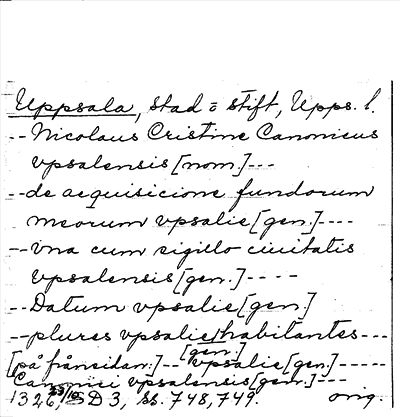 Uppsala, stad o stift, Upps. l.
-- Nicolaus Cristine Canonicus
vpsalensis [nom.] ---
-- de acquisicione fundorum
meorum vpsalie [gen.] ---
-- vna cum sigillo ciuitatis
vpsalensis [gen.] ----
-- Datum vpsalie [gen.]
-- plures vpsalie [gen.] habitantes ---
[på frånsidan:] -- vpsalie [gen.] -----
Canonici vpsalensis [gen.] ---
1326 SD 3, ss. 748, 749. orig.